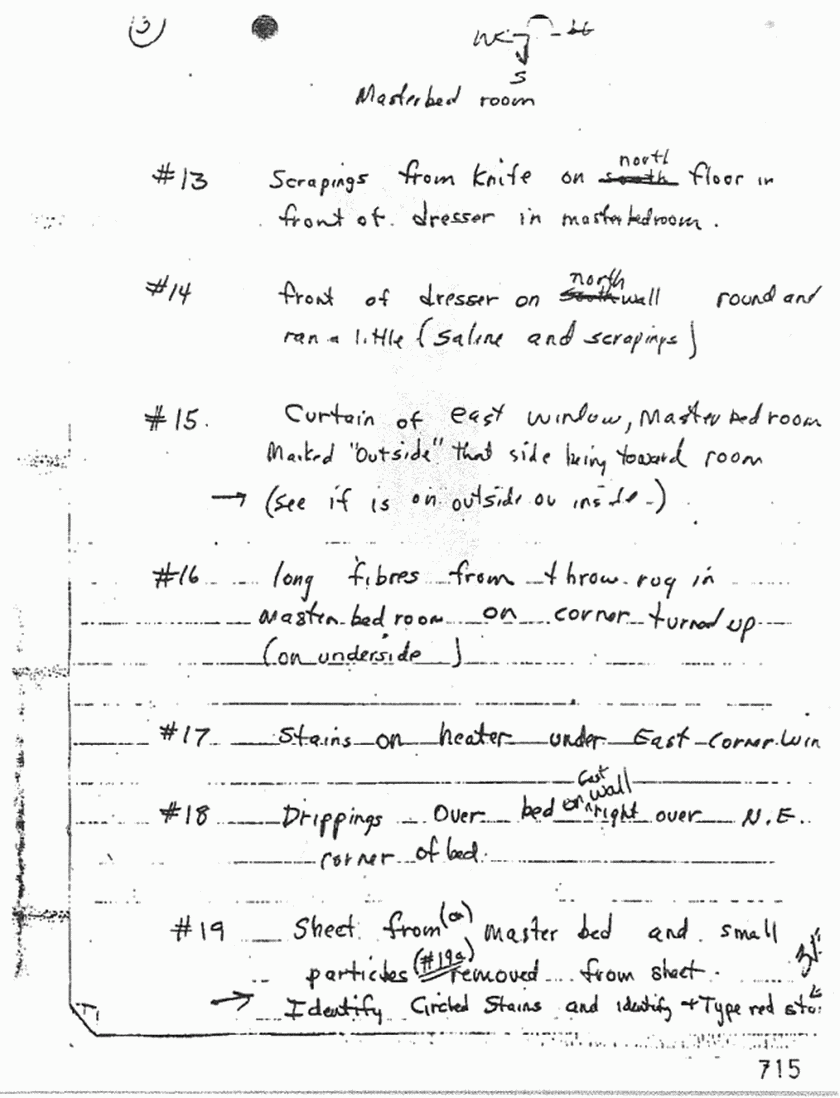 3
W S
Masterbed room
#13 Scrapings from knife on north south floor in
front of dresser in masterbedroom.
#14 front of dresser on north south wall round and
ran a little (Saline and scrapings)
#15. Curtain of east window, Master bedroom
Marked "outside" that side being toward room
→ (see if is on outside or inside.)
#16 long fibres from throw rug in
Master bedroom on corner turned up
(on underside)
#17 Stains on heater under East corner Win
#18 Drippings over bed on East wall right over N.E.
corner of bed.
#19 Sheet from (on) Master bed and small
particles (#19a) removed from sheet.
→ Identify Circled Stains and identify + Type red
715